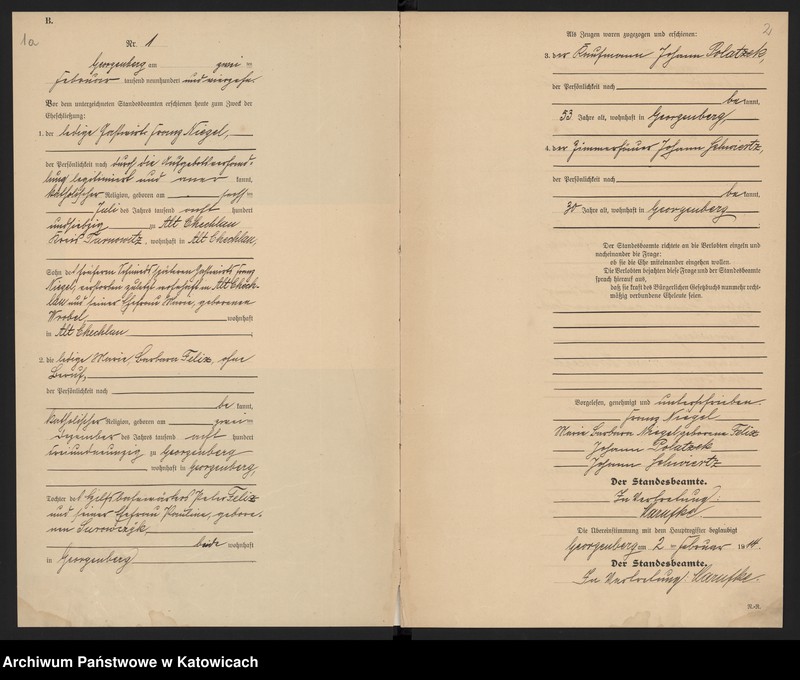 B.
1a
Nr. 1
Georgenberg am zwei ten
Februar tausend neunhundert und vierzehn.
Vor dem unterzeichneten Standesbeamten erschienen heute zum Zweck der
Eheschließung:
1. der ledige Gastwirt Franz Niegel,
der Persönlichkeit nach durch die Aufgebotsverhand
lung legitimiert und aner kannt,
katholischer Religion, geboren am
Juli des Jahres tausend acht hundert
undsiebzig zu Alt Chechlau
Kreis Tarnowitz, wohnhaft in Alt Chechlau,
Sohn des früheren Schmieds späteren Gastwirts Franz
Niegel, verstorben zuletzt wohnhaft in Alt Chech-
lau und seiner Ehefrau Marie, geborenen
Wrobel wohnhaft
in Alt Chechlau
2. die ledige Marie, Barbara Felix, ohne
Beruf,
der Persönlichkeit nach
be kannt,
katholischer Religion, geboren am zwei ten
Dezember des Jahres tausend acht hundert
dreiundneunzig zu Georgenberg
wohnhaft in Georgenberg,
Tochter des Hilfsbahnwärters Peter Felix
und seiner Ehefrau Pauline, gebore-
nen
beide wohnhaft
in Georgenberg
2
Als Zeugen waren zugezogen und erschienen:
3. der Kaufmann Johann Polatzek,
der Persönlichkeit nach
be kannt,
53 Jahre alt, wohnhaft in Georgenberg
4. der Zimmerhäuer Johann Schwiertz,
der Persönlichkeit nach
be kannt,
30 Jahre alt, wohnhaft in Georgenberg
Der Standesbeamte richtete an die Verlobten einzeln und
nacheinander die Frage:
ob sie die Ehe miteinander eingehen wollen.
Die Verlobten bejahten diese Frage und der Standesbeamte
sprach hierauf aus,
daß sie kraft des Bürgerlichen Gesetzbuchs nunmehr recht-
mäßig verbundene Eheleute seien.
Vorgelesen, genehmigt und unterschrieben.
Franz Niegel
Marie Barbara Niegel geborene Felix
Johann Polatzek
Johann Schwiertz
Der Standesbeamte.
In Vertretung:
Die Übereinstimmung mit dem Hauptregister beglaubigt
Georgenberg am 2 ten Februar 1914.
Der Standesbeamte.
In Vertretung:
Archiwum Państwowe w Katowicach